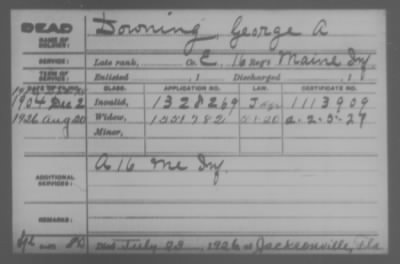 DEAD Downing, George A
NAME OF SOLDIER:
SERVICE: Late rank, Co. C, 16 Reg't Maine Inf
TERM OF SERVICE: Enlisted , 1 Discharged , 1
DATE OF FILING. CLASS. APPLICATION NO. LAW. CERTIFICATE NO.
1904 Dec 2 Invalid, 1328269 1113909
1926 Aug 20 Widow, 1551782 a-2-5-29
Minor,
ADDITIONAL SERVICES: A 16 Me Inf.
REMARKS:
Died July 28, 1926 at Jacksonville, Fla